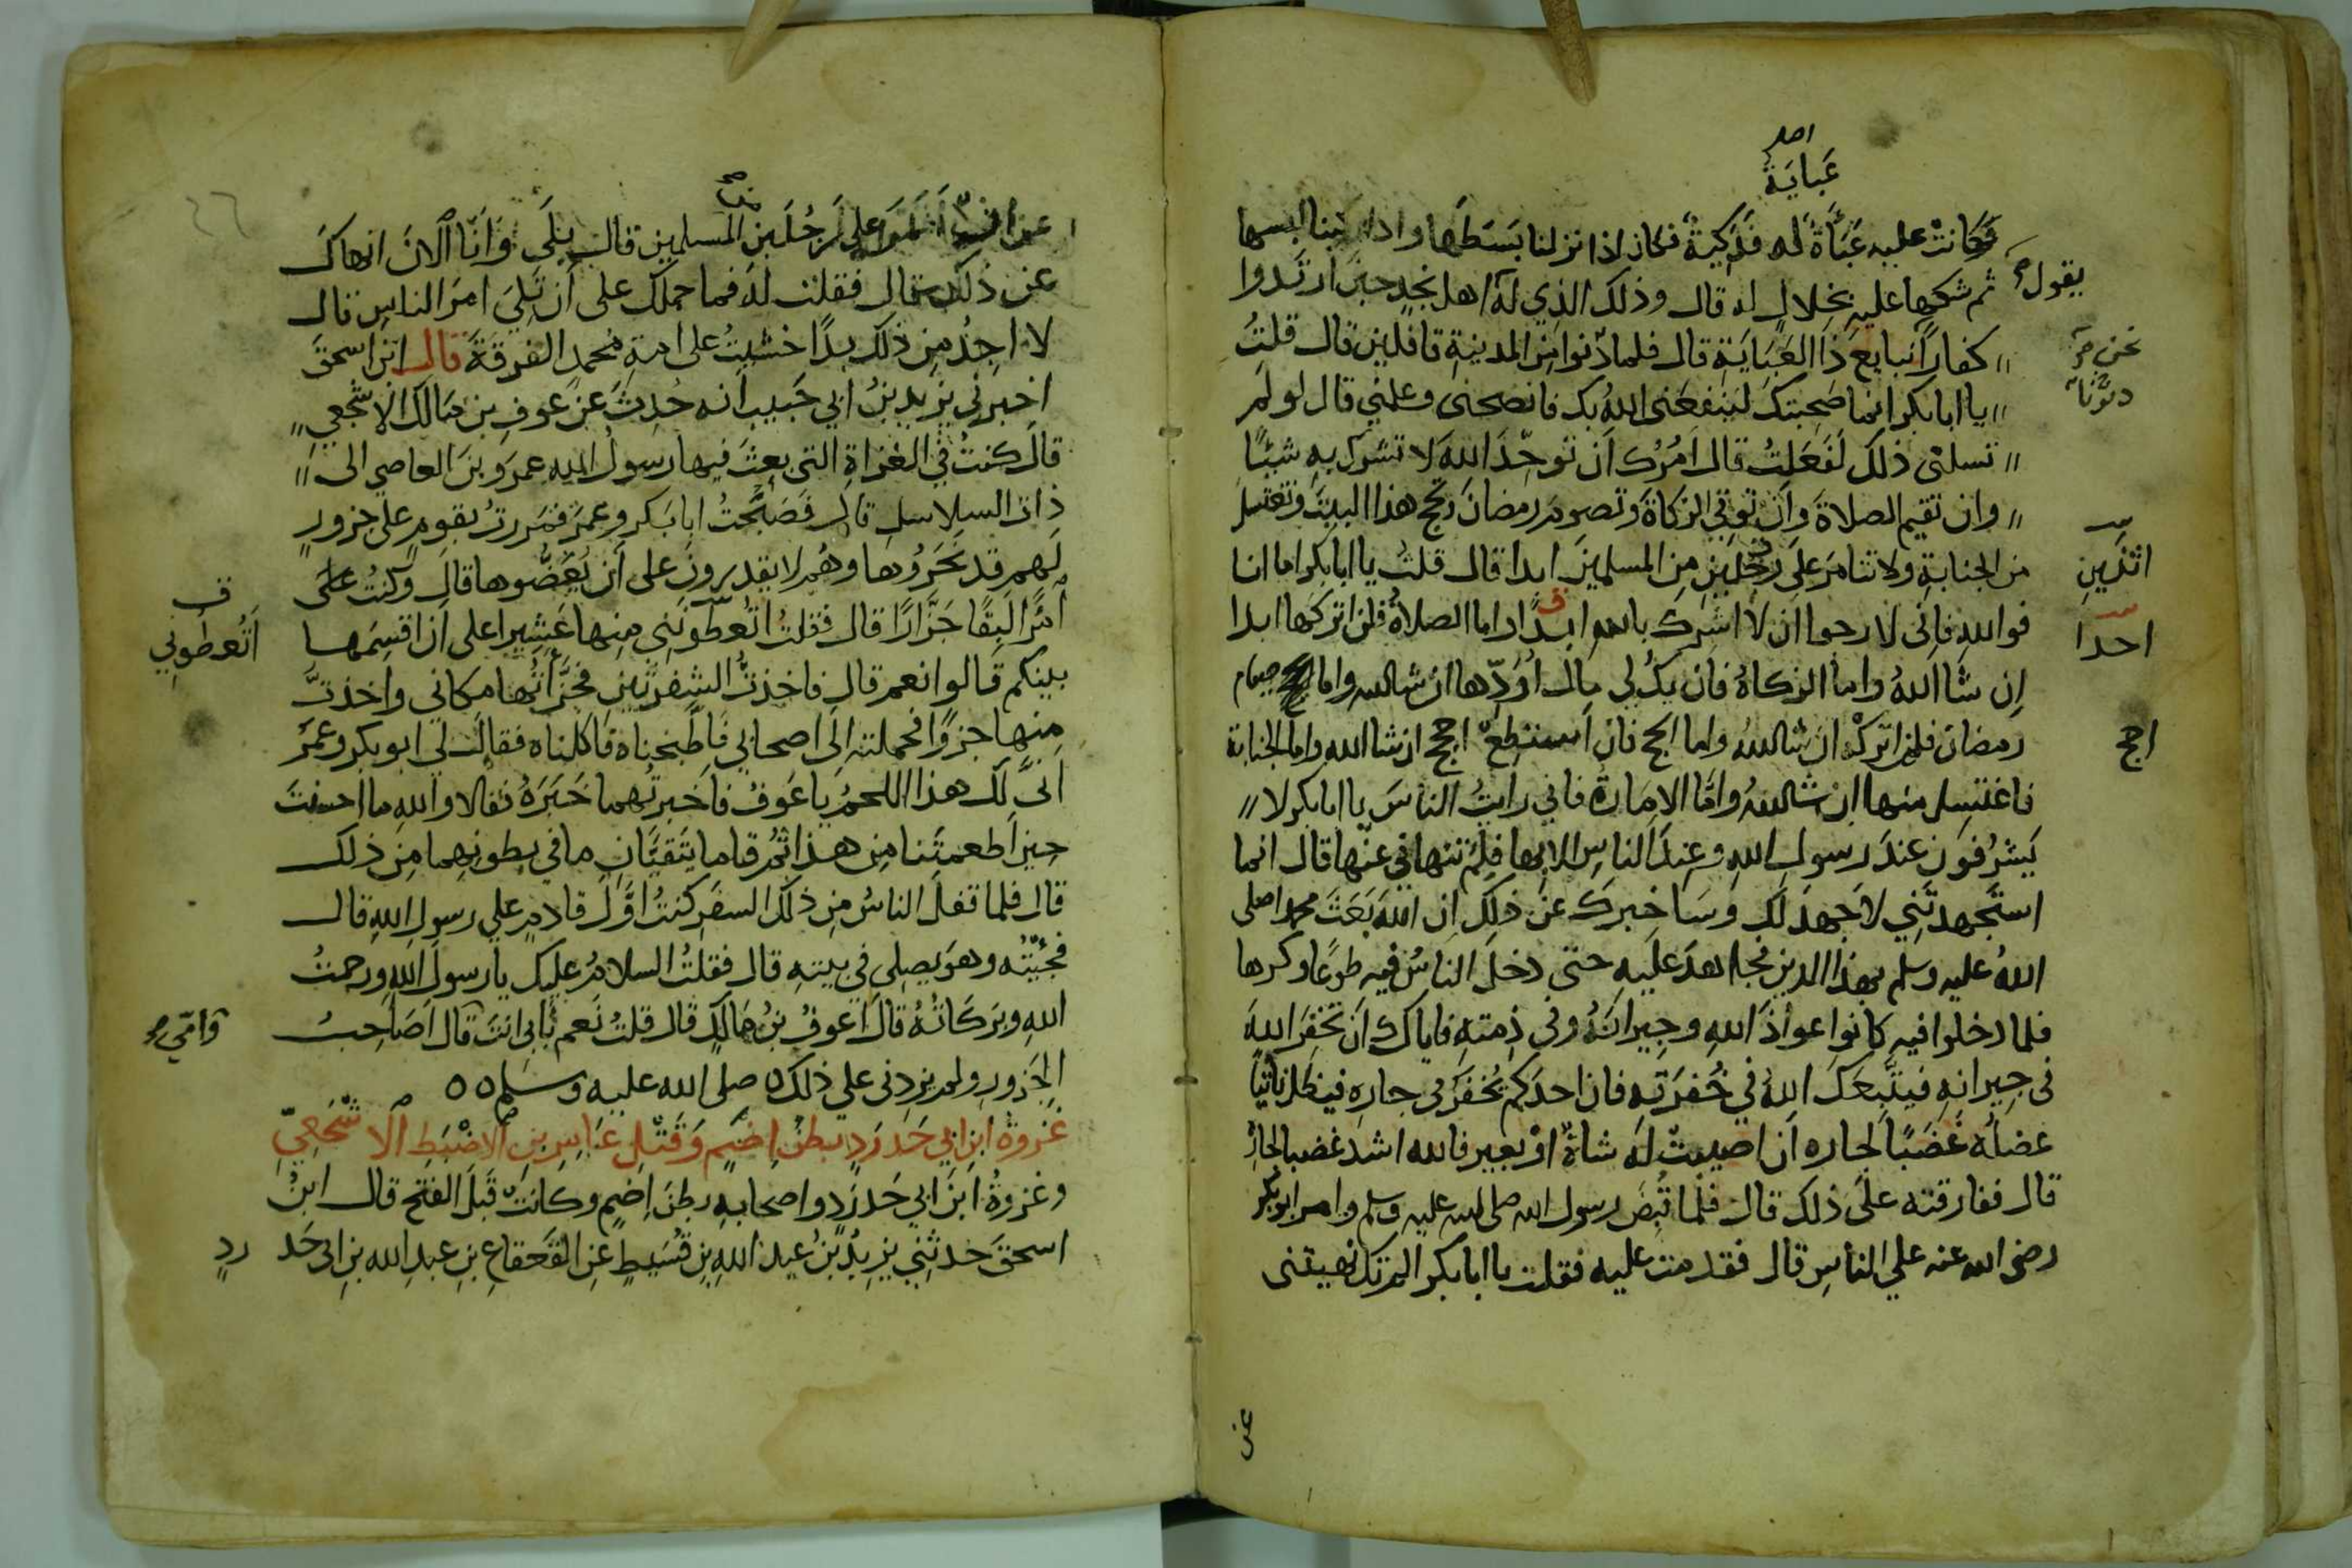 اصل
عَبايَة
فكانتْ عليه عَبَاةٌ له فَدَكِيةٌ فكان اذا نزلنا بَسَطَها واذا ركبنا لبسها
ثم شكها عليه بخِلالٍ له قال وذلك الذي له اهل نجدٍ حين ارتدوا
يقول
كفاراً نبايع ذا العَبَايَةِ قال فلما دنوا من المدينةِ قافلين قال قلتُ
نحن
دنونا
يا ابا بكر انما صَحِبتك لينفعَنى اللهُ بك فانصحنى وعلمني قال لو لم
تسلنى ذلك لَفَعَلتُ قال اٰمُرُك اَن توحِّدَ اللهَ لا تشرك بهِ شيئًا
وان تقيم الصلاة وان توتي الزكاةَ وتصومَ رمضانَ وتحج هذا البيتَ وتغتسل
من الجنابةِ ولا تتامر على رجُلَينِ مِن المسلمينَ ابدا قال قلتُ يا ابا بكر اما انا
اثنَينِ
فواللهِ فانى لارجوا ان لا اشرك بالله ابدًا واما الصلاةُ فلن اتركها ابدا
احدًا
اِن شا اللهُ واما الزكاةُ فان يكُ لي مالٌ اُوَدِّها ان شا الله واما صيام
رمضان فلن اتركه ان شا اللهُ واما الحج فان استطع احجج ان شا الله واما الجنابة
احج
فاغتسِل منها ان شا اللهُ وامَّا الاِمَارة فاني رايتُ الناسَ يا ابا بكر لا
يَشرُفون عندَ رسولِ اللهِ وعندَ الناسِ الا بها فلِمَ تنهاني عنها قال انما
استَجهدتَني لاَجهَدَ لك وسَاخبرك عن ذلك ان اللهَ بَعَثَ محمدا صلى
اللهُ عليه وسلم بهذا الدينِ فجاهدَ عليه حتى دخلَ الناسُ فيه طوعًا وكرها
فلما دخلوا فيهِ كانوا عواذَ اللهِ وجيرانَهُ وفي ذِمتهِ فاياك ان تخفِرَ اللهَ
فى جيرانهِ فيتَّبِعَكَ اللهُ في خُفرَتِه فان احدَكم يُخفَرُ في جارِه فيظل ناتيًا
عضلُه غَضَبًا لجاره اَن اصيبتْ له شاةٌ اوْ بعير فالله اشد غضبا لجارِه
قال ففارقته على ذلك قال فلما قُبِضَ رسول الله صلى الله عليه وسلم وامر ابو بكر
رضى الله عنه على الناسِ قال فقدمت عليه فقلت يا ابا بكر الم تك نهيتنى
عن
عن ان اتامر على رَجُلَينِ من المسلمين قال بلَى وَاَنَا الانَ انهاكَ
عن ذلك قال فقلت لهُ فما حملك على اَن تَلِيَ امرَ الناسِ قال
لا اجِدُ مِن ذلك بدًا خشيتُ على امةِ محمدٍ الفرقةَ قال ابن اسحقَ
اخبرني يزيد بنُ ابي حَبيبٍ انه حُدِثَ عَن عوفِ بن مَالك الاشجعي
قال كنتُ في الغزاةِ التى بعثَ فيها رسولُ اللهِ عمرَو بنَ العاصي الى
ذات السلاسل قال فصحبتُ ابا بَكر وعمرَ فمررتُ بقومٍ على جزورٍ
لهم قد نَحَرُوها وهُم لا يقدرون على اَن يُعَضُّوها قال وكنتُ
امرًا لَبِقًا جَزَّارًا قال فقلت اتُعطُونَنِي مِنها عَشِيرا على اَن اقسِمَها
اَتُعطوني
بينكم قالوا نعم قال فاخذتُ الشفرتَين فجزَّأتُها مكاني واخذتُ
مِنها جزوًا فحملته الى اصحابي فاطَّبخناه فاكلناه فقال لي ابو بكر وعمرُ
انَّى لَك هذا اللحمُ يا عَوفُ فاَخبرتُهما خَبَرَهُ فقالا واللهِ ما احسنتَ
حينَ اَطعمتَنا مِن هذا ثم قاما يَتَقيَّانِ ما في بطونِهما مِن ذلك
قال فلما قفلَ الناسُ مِن ذلك السفَرِ كنتُ اوَّلَ قادمٍ على رسولِ اللهِ قال
فجئتُه وهوَ يصلي في بيتهِ قال فقلتُ السلامُ عليك يا رسول اللهِ ورحمتُ
اللهِ وبَرَكَاتُهُ قال اَعوفُ بنُ مَالكٍ قال قلتُ نَعم بابى انتَ قال اَصَاحبُ
وامّي
الجَزورِ ولم يزدنى على ذلك صلى الله عليه وسلم
غَزوة ابنِ ابي حَدرَدٍ بطنَ اِضَمٍ وَقَتلِ عَامِرِ بنِ الاضبَطِ الاشجَعِيّ
وغزوةُ ابنِ ابي حَدرَدٍ واصحابِهِ بطنَ اِضمٍ وكانتْ قَبلَ الفتح قال ابنُ
اسحقَ حدثني يزيدُ بنُ عبد اللهِ بنِ قُسَيطٍ عنِ القعقاعِ بنِ عبدِ الله بنِ ابى حَد رد